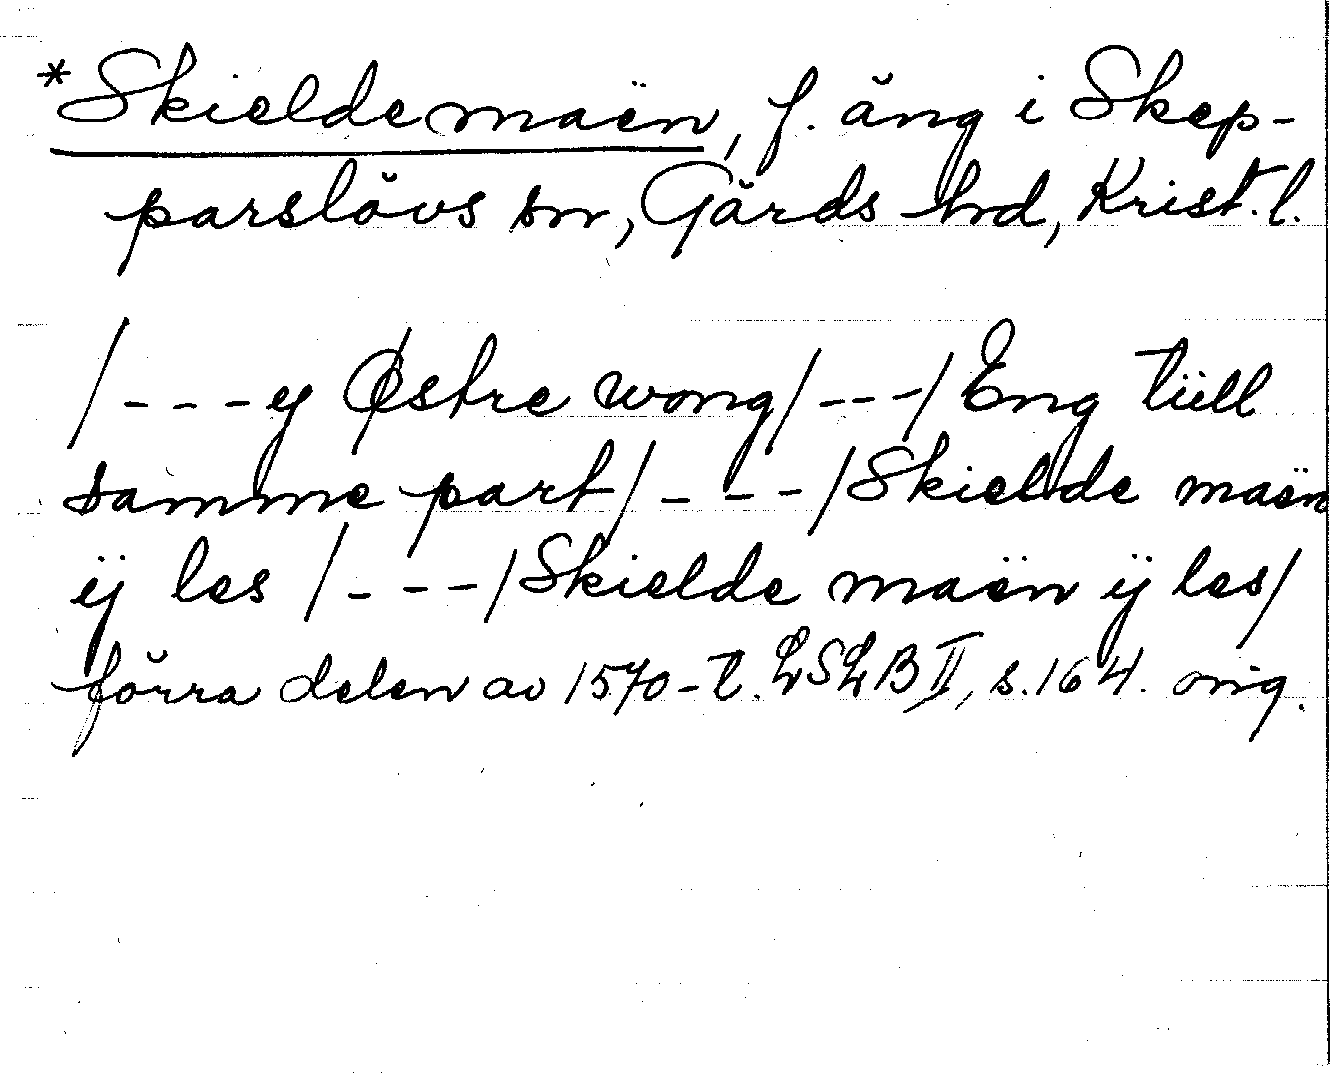 *Skieldemaën, f. äng i Skep-
parslövs sn, Gärds hd, Krist. l.
/---y Østre wong/---/Eng tüll
samme part/---/Skielde maën
ÿ les /---/Skielde maën ÿ les/
förra delen av 1570-t. LSLB II, s. 164. orig.